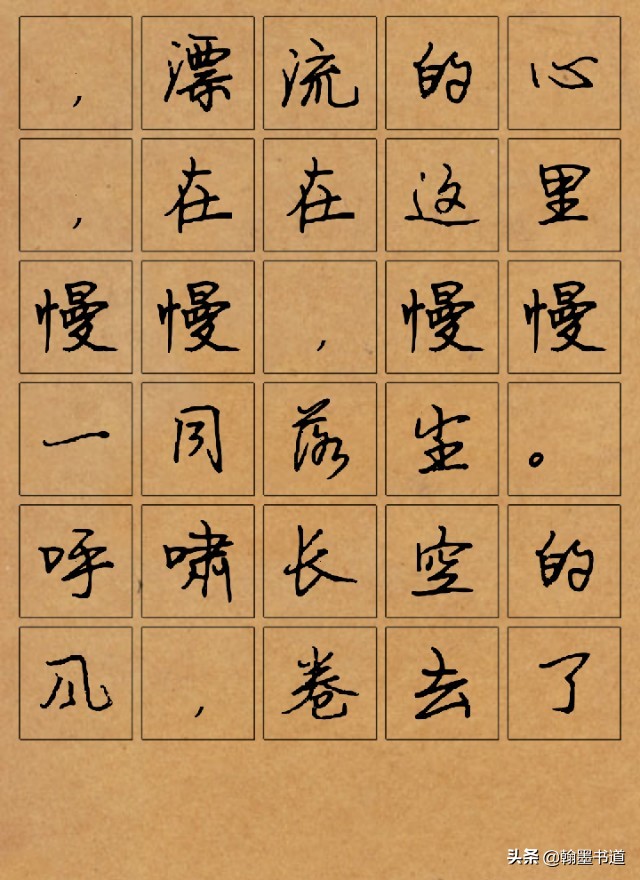 ，漂流的心
，在在这里
慢慢，慢慢
一同落尘。
呼啸长空的
风，卷去了
头条 @翰墨书道